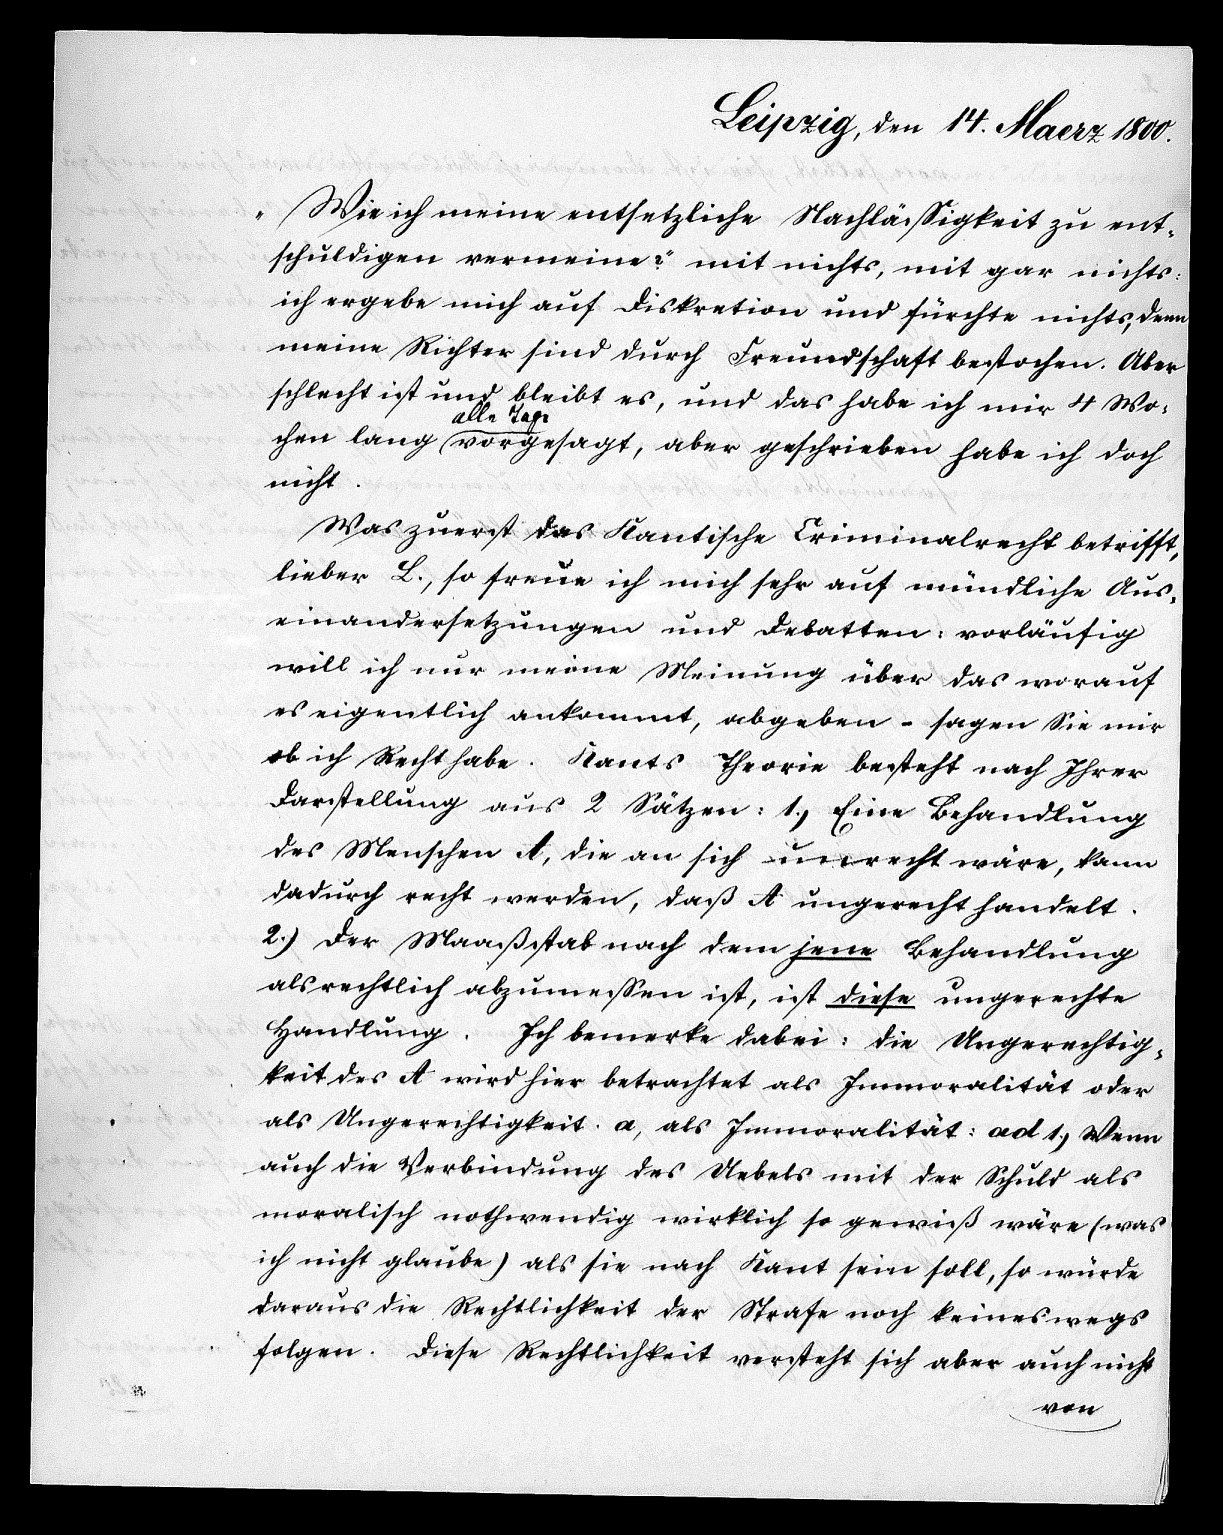 Leipzig, den 14. Maerz 1800.
„ Wie ich meine entsetzliche Nachläßigkeit zu ent-
schuldigen vermeine?“ mit nichts, mit gar nichts:
ich ergebe mich auf Diskretion und fürchte nichts, denn
meine Richter sind durch Freundschaft bestochen. Aber
schlecht ist und bleibt es, und das habe ich mir 4 Wo-
alle Tage
chen lang vorgesagt, aber geschrieben habe ich doch
nicht.
Was zuerst das Kantische Criminalrecht betrifft,
lieber L., so freue ich mich sehr auf mündliche Aus-
einandersetzungen und Debatten: vorläufig
will ich nur meine Meinung über das worauf
es eigentlich ankommt, abgeben - sagen Sie mir
ob ich Recht habe. Kants Theorie besteht nach Ihrer
Darstellung aus 2 Sätzen: 1.) Eine Behandlung
des Menschen A, die an sich unrecht wäre, kann
dadurch recht werden, daß A ungerecht handelt.
2.) Der Maaßstab nach dem jene Behandlung
als rechtlich abzumeßen ist, ist diese ungerechte
Handlung. Ich bemerke dabei: die Ungerechtig-
keit des A wird hier betrachtet als Immoralität oder
als Ungerechtigkeit. a, als Immoralität: ad 1.) Wenn
auch die Verbindung des Uebels mit der Schuld als
moralisch nothwendig wirklich so gewiß wäre (was
ich nicht glaube) als sie nach Kant sein soll, so würde
daraus die Rechtlichkeit der Strafe noch keineswegs
folgen. Diese Rechtlichkeit versteht sich aber auch nicht
von